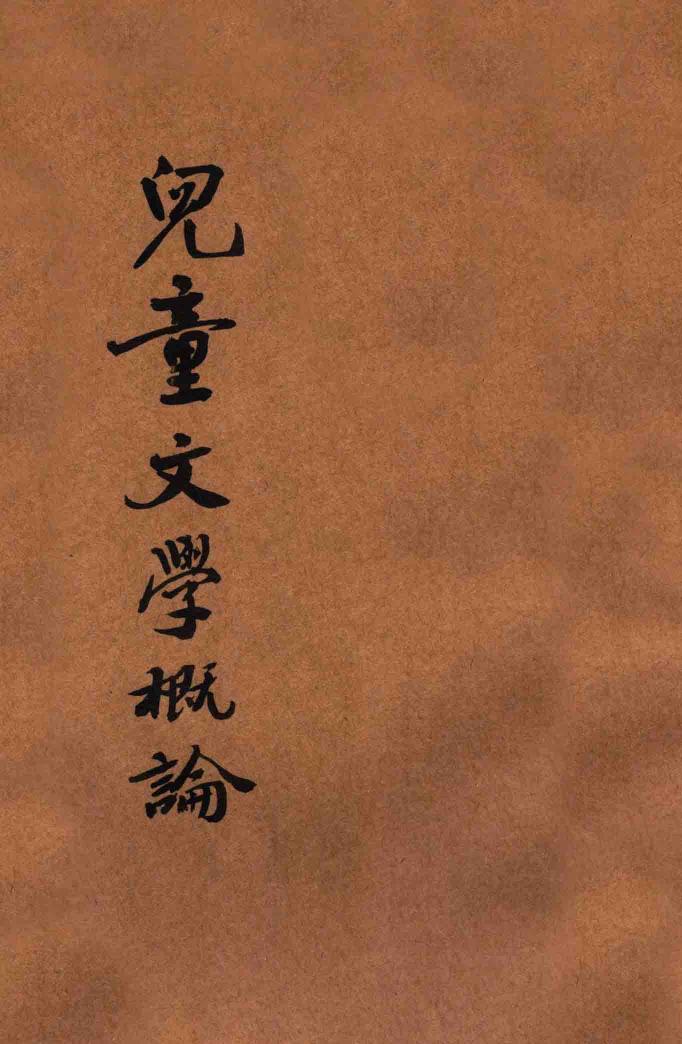 兒童文學概論